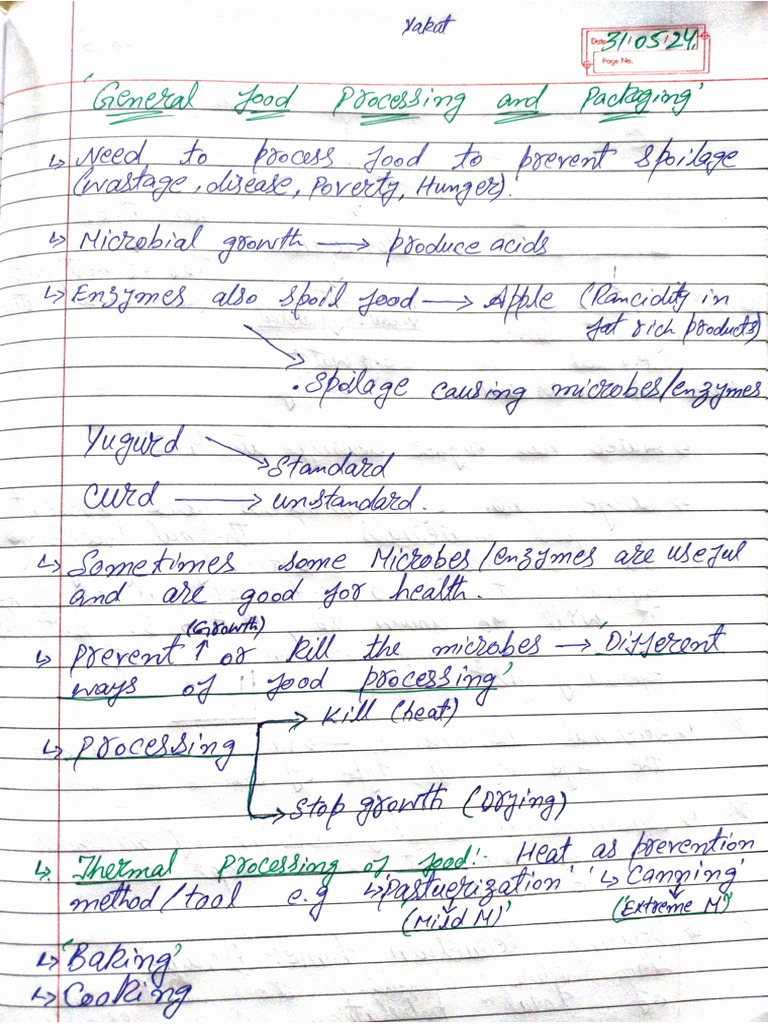 Yakat
Date 31/05/24.
Page No.
'General food Processing and Packaging'
↳ Need to process food to prevent spoilage
(wastage, disease, Poverty, Hunger).
↳ Microbial growth → produce acids
↳ Enzymes also spoil food → Apple (Rancidity in
fat rich products)
• Spoilage causing microbes/enzymes
Yugurd → Standard
Curd → unstandard.
↳ Sometimes some Microbes/enzymes are useful
and are good for health.
(Growth)
↳ Prevent ↑ or kill the microbes → 'Different
ways of food processing'
→ Kill (heat)
↳ Processing
→ Stop growth (Drying)
↳. Thermal Processing of food:- Heat as prevention
method/tool e.g ↳ 'Pastuerization' '↳ Canning'
(Mild M)' ('Extreme M')
↳ 'Baking'
↳ Cooking